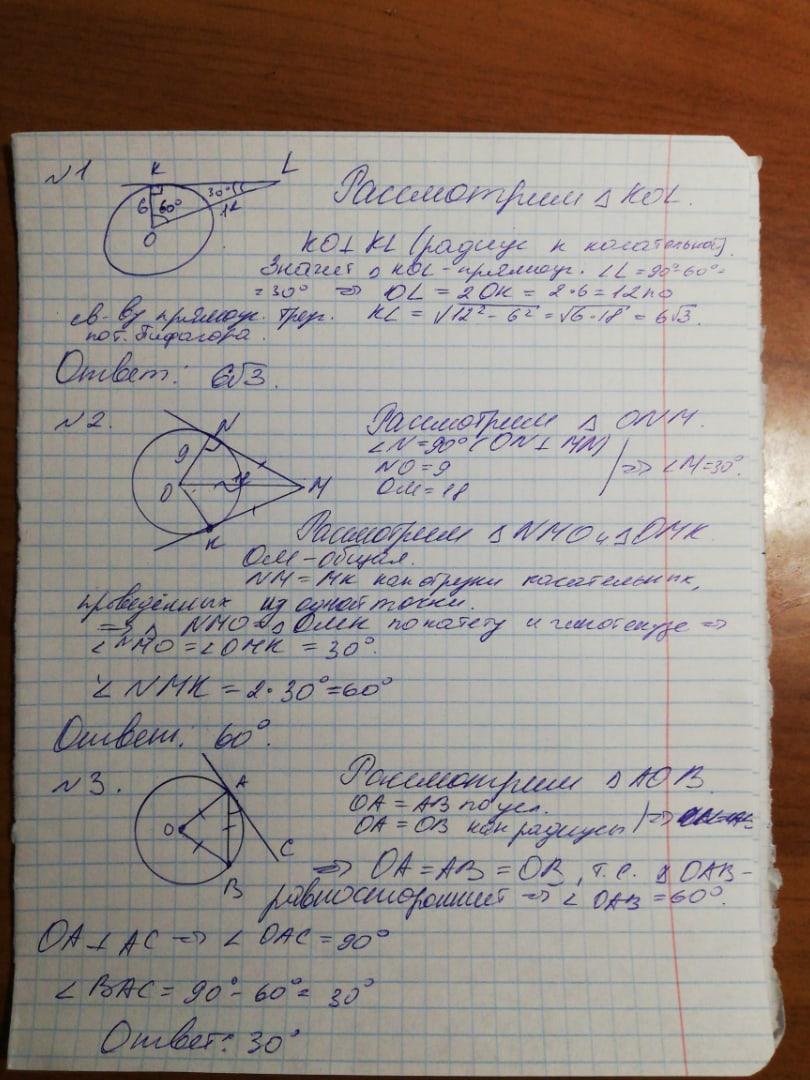 №1
K
L
30°
6
60°
12
O
Рассмотрим △ KOL.
KO⊥KL (радиус к касательной)
Значит △ KOL - прямоуг. ∠L = 90°-60°=
= 30° ⇒ OL = 2OK = 2·6 = 12 по
св-ву прямоуг. треуг. KL = √12² - 6² = √6·18 = 6√3.
по т. Пифагора.
Ответ: 6√3.
№2.
N
9
O
18
M
K
Рассмотрим △ ONM.
∠N=90° (ON⊥MN)
NO=9
OM=18
⇒ ∠M=30°.
Рассмотрим △NMO и △OMK
OM - общая.
NM = MK как отрезки касательных,
проведённых из одной точки.
⇒ △ NMO = △ OMK по катету и гипотенузе ⇒
∠NMO = ∠OMK = 30°.
∠ NMK = 2·30° = 60°
Ответ: 60°.
№3.
A
O
C
B
Рассмотрим △ AOB.
OA = AB по усл.
OA = OB как радиусы ⇒
⇒ OA = AB = OB, т.е. △ OAB -
равносторонний ⇒ ∠ OAB = 60°.
OA ⊥ AC ⇒ ∠ OAC = 90°
∠ BAC = 90° - 60° = 30°
Ответ: 30°